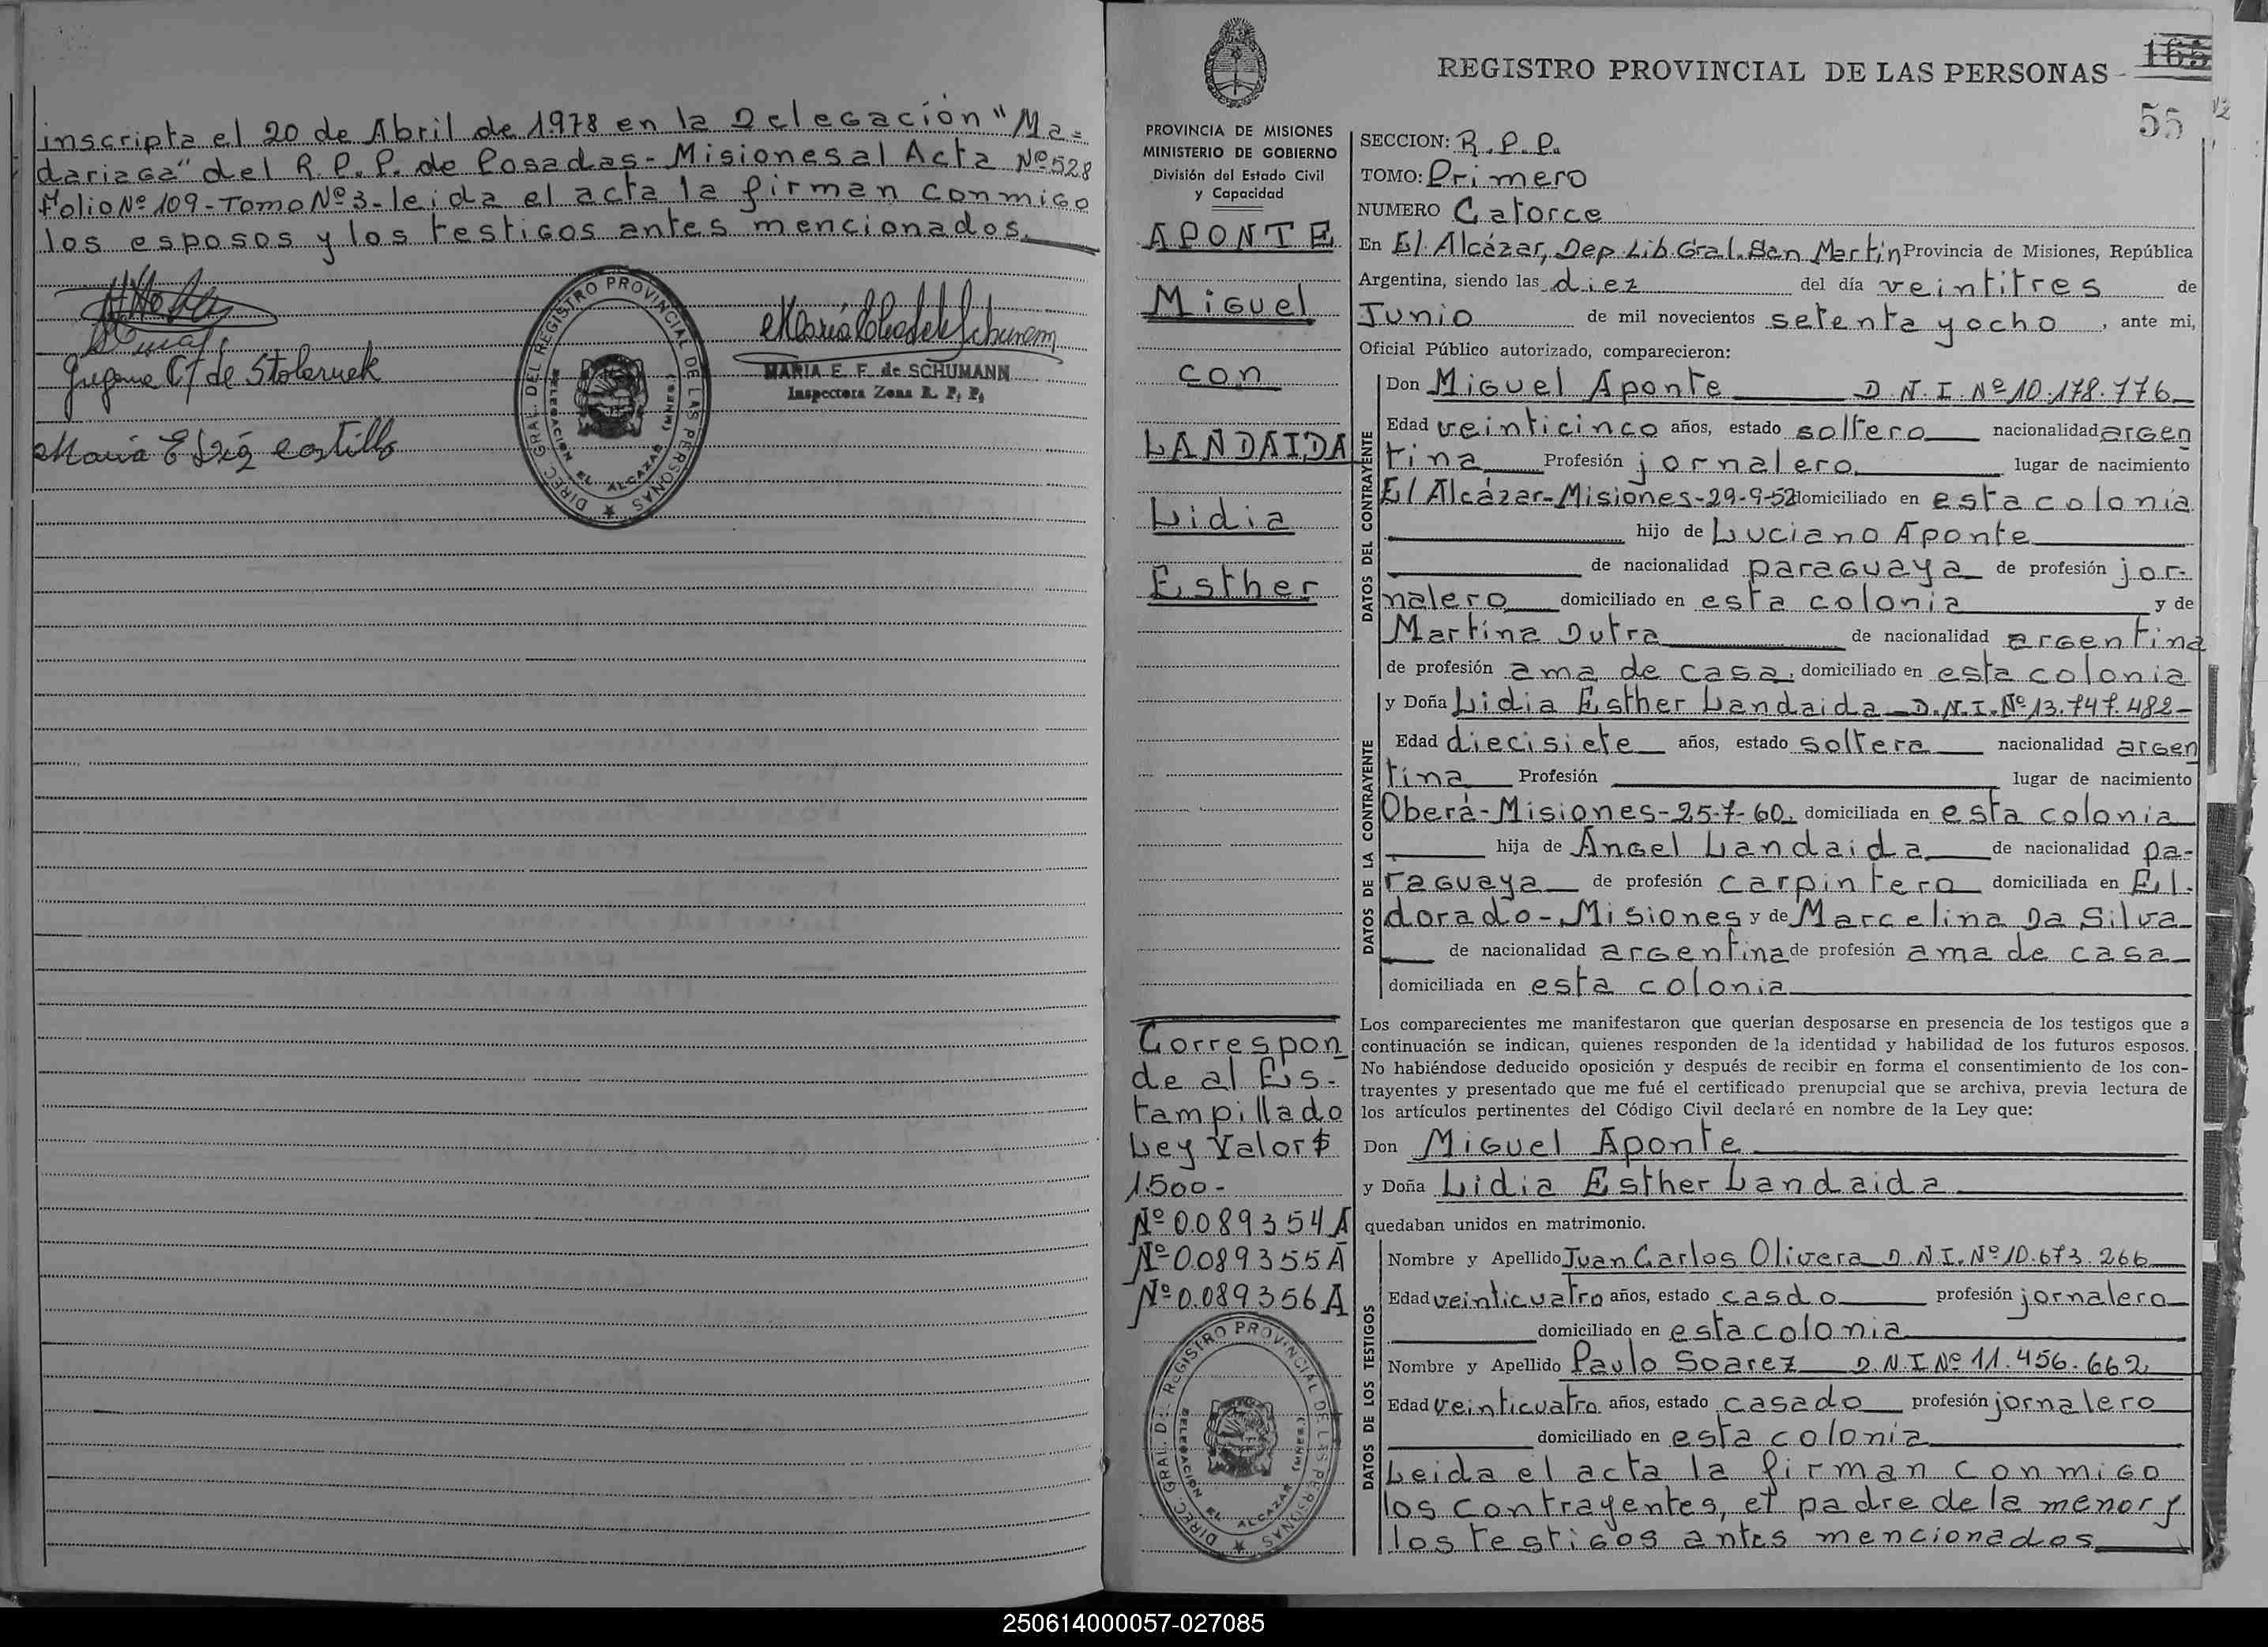 inscripta el 20 de Abril de 1978 en la Delegación "Ma-
dariaga" del R.P.P. de Posadas - Misiones al Acta Nº 528
Folio Nº 109 - Tomo Nº 3 - leida el acta la firman conmigo
los esposos y los testigos antes mencionados.
MARIA E. F. de SCHUMANN
Inspectora Zona R. P. P.
DIREC. GRAL. DEL REGISTRO PROVINCIAL DE LAS PERSONAS
DELEGACION EL ALCAZAR (MNES)
REGISTRO PROVINCIAL DE LAS PERSONAS
165
55
PROVINCIA DE MISIONES
MINISTERIO DE GOBIERNO
División del Estado Civil
y Capacidad
APONTE
Miguel
con
LANDAIDA
Lidia
Esther
Correspon
de al Es-
tampillado
Ley Valor $
1.500-
Nº 0.089354 A
Nº 0.089355 A
Nº 0.089356 A
DIREC. GRAL. D. REGISTRO PROVINCIAL DE LAS PERSONAS
DELEGACION EL ALCAZAR (MNES)
SECCION: R.P.P.
TOMO: Primero
NUMERO Catorce
En El Alcázar, Dep. Lib. Gral. San Martín Provincia de Misiones, República
Argentina, siendo las diez del día veintitres de
Junio de mil novecientos setenta y ocho, ante mi,
Oficial Público autorizado, comparecieron:
DATOS DEL CONTRAYENTE
Don Miguel Aponte D.N.I. Nº 10.178.776
Edad veinticinco años, estado soltero nacionalidad argen
tina Profesión jornalero lugar de nacimiento
El Alcázar-Misiones-29-9-52 domiciliado en esta colonia
hijo de Luciano Aponte
de nacionalidad paraguaya de profesión jor-
nalero domiciliado en esta colonia y de
Martina Dutra de nacionalidad argentina
de profesión ama de casa, domiciliado en esta colonia
DATOS DE LA CONTRAYENTE
y Doña Lidia Esther Landaida D.N.I. Nº 13.747.482-
Edad diecisiete años, estado soltera nacionalidad argen
tina Profesión lugar de nacimiento
Oberá-Misiones-25-7-60. domiciliada en esta colonia
hija de Angel Landaida de nacionalidad pa-
raguaya de profesión carpintero domiciliada en El-
dorado-Misiones y de Marcelina Da Silva
de nacionalidad argentina de profesión ama de casa
domiciliada en esta colonia
Los comparecientes me manifestaron que querían desposarse en presencia de los testigos que a
continuación se indican, quienes responden de la identidad y habilidad de los futuros esposos.
No habiéndose deducido oposición y después de recibir en forma el consentimiento de los con-
trayentes y presentado que me fué el certificado prenupcial que se archiva, previa lectura de
los artículos pertinentes del Código Civil declaré en nombre de la Ley que:
Don Miguel Aponte
y Doña Lidia Esther Landaida
quedaban unidos en matrimonio.
DATOS DE LOS TESTIGOS
Nombre y Apellido Juan Carlos Olivera D.N.I. Nº 10.673.266
Edad veinticuatro años, estado casdo profesión jornalero
domiciliado en esta colonia
Nombre y Apellido Paulo Soarez D.N.I Nº 11.456.662
Edad veinticuatro años, estado casado profesión jornalero
domiciliado en esta colonia
Leida el acta la firman conmigo
los contrayentes, el padre de la menor y
los testigos antes mencionados
250614000057-027085